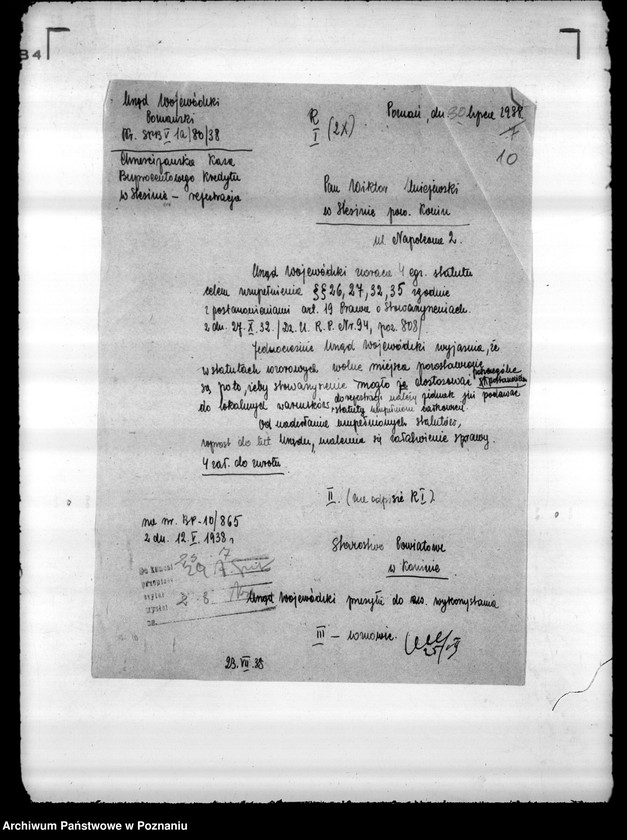 Urząd Wojewódzki
Poznański
Nr. SPB V 1a/80/38
Chrześcijańska Kasa
Bezprocentowego Kredytu
w Ślesinie – rejestracja
R
I (2x)
Poznań, dn. 30 lipca 1938
10
Pan Wiktor
w Ślesinie pow. Konin
ul. Napoleona 2.
Urząd Wojewódzki zwraca 4 egz. statutu
celem uzupełnienia §§ 26, 27, 32, 35 zgodnie
z postanowieniami art. 19 Prawa o Stowarzyszeniach
z dn. 27. X. 32. /Dz. U. R. P. Nr. 94, poz. 808/.
Jednocześnie Urząd Wojewódzki wyjaśnia, że
w statutach wzorowych wolne miejsca pozostawione
są po to, żeby stowarzyszenie mogło je dostosować poszczególne postanowienia
do lokalnych warunków, do rejestracji należy jednak już podawać
statuty uzupełnione całkowicie.
Od nadesłania uzupełnionych statutów,
wprost do tut. Urzędu, uzależnia się załatwienie sprawy.
4 zał. do zwrotu.
II. (na odpisie R I)
na nr. BP-10/865
z dn. 12. V. 1938 r
Starostwo Powiatowe
w Koninie
23. 7
29 7
2. 8.
Urząd Wojewódzki przesyła do wykorzystania
III –
23. VII. 38
84
Archiwum Państwowe w Poznaniu